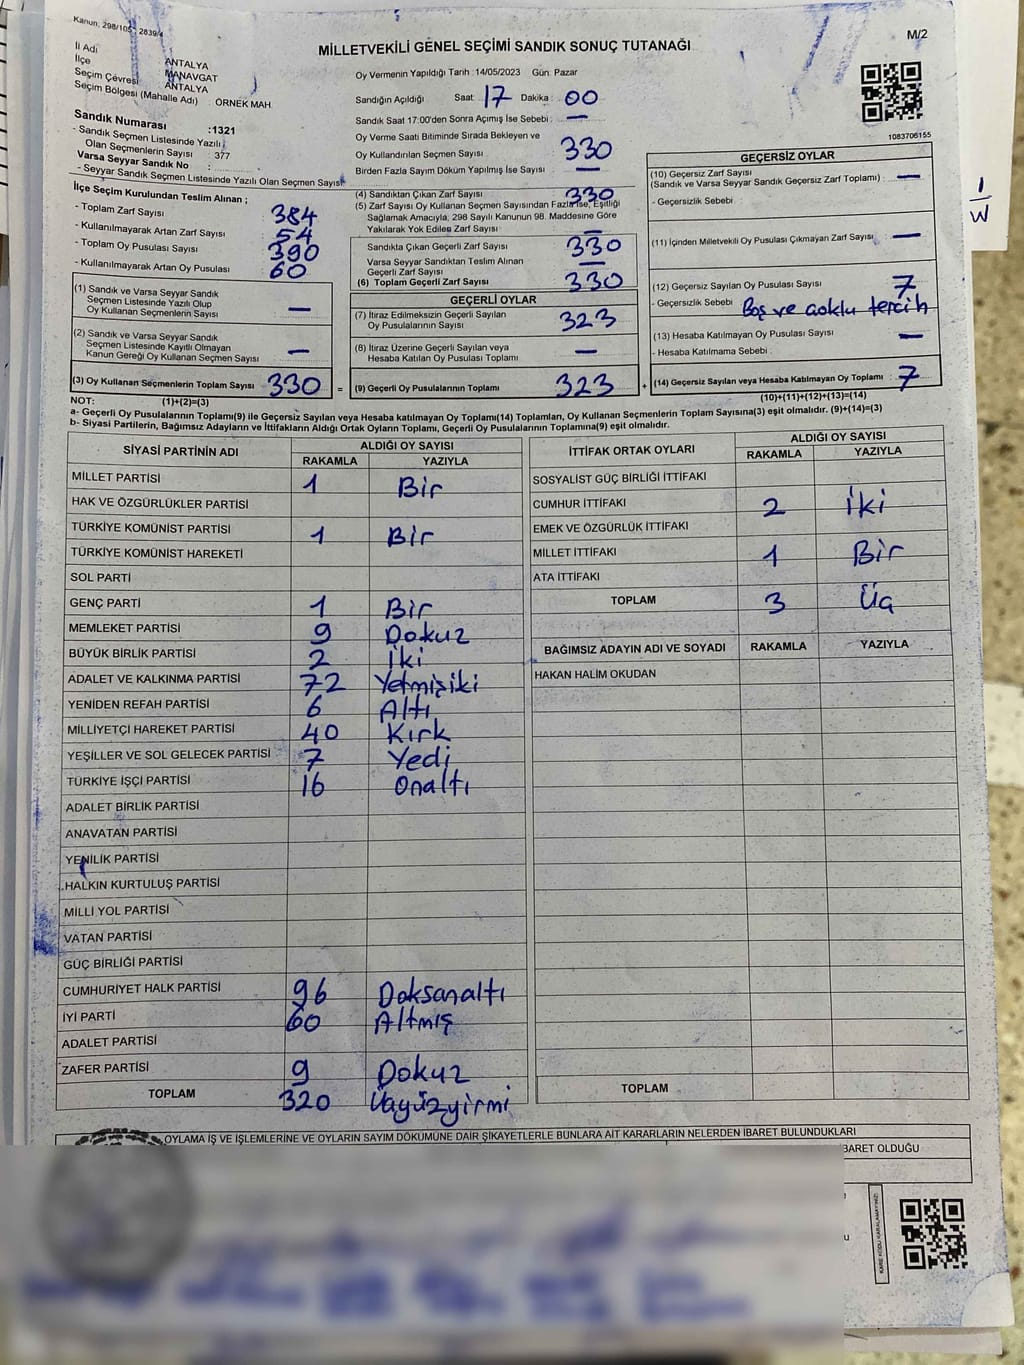 Kanun, 298/105 - 2839/4
M/2
MİLLETVEKİLİ GENEL SEÇİMİ SANDIK SONUÇ TUTANAĞI
İl Adı ANTALYA
İlçe MANAVGAT
Seçim Çevresi ANTALYA
Seçim Bölgesi (Mahalle Adı) ÖRNEK MAH.
Sandık Numarası :1321
- Sandık Seçmen Listesinde Yazılı
Olan Seçmenlerin Sayısı : 377
Varsa Seyyar Sandık No :
- Seyyar Sandık Seçmen Listesinde Yazılı Olan Seçmen Sayısı
İlçe Seçim Kurulundan Teslim Alınan ;
- Toplam Zarf Sayısı 384
- Kullanılmayarak Artan Zarf Sayısı 54
- Toplam Oy Pusulası Sayısı 390
- Kullanılmayarak Artan Oy Pusulası 60
(1) Sandık ve Varsa Seyyar Sandık
Seçmen Listesinde Yazılı Olup
Oy Kullanan Seçmenlerin Sayısı —
(2) Sandık ve Varsa Seyyar Sandık
Seçmen Listesinde Kayıtlı Olmayan
Kanun Gereği Oy Kullanan Seçmen Sayısı —
(3) Oy Kullanan Seçmenlerin Toplam Sayısı 330 =
(1)+(2)=(3)
Oy Vermenin Yapıldığı Tarih : 14/05/2023 Gün: Pazar
Sandığın Açıldığı Saat : 17 Dakika : 00
Sandık Saat 17:00'den Sonra Açımış İse Sebebi : —
Oy Verme Saati Bitiminde Sırada Bekleyen ve
Oy Kullandırılan Seçmen Sayısı : 330
Birden Fazla Sayım Döküm Yapılmış İse Sayısı —
(4) Sandıktan Çıkan Zarf Sayısı 330
(5) Zarf Sayısı Oy Kullanan Seçmen Sayısından Fazla İse, Eşitliği
Sağlamak Amacıyla, 298 Sayılı Kanunun 98. Maddesine Göre
Yakılarak Yok Edilen Zarf Sayısı —
Sandıkta Çıkan Geçerli Zarf Sayısı 330
Varsa Seyyar Sandıktan Teslim Alınan
Geçerli Zarf Sayısı —
(6) Toplam Geçerli Zarf Sayısı 330
GEÇERLİ OYLAR
(7) İtiraz Edilmeksizin Geçerli Sayılan
Oy Pusulalarının Sayısı 323
(8) İtiraz Üzerine Geçerli Sayılan veya
Hesaba Katılan Oy Pusulası Toplamı —
(9) Geçerli Oy Pusulalarının Toplamı 323 +
1083706155
GEÇERSİZ OYLAR
(10) Geçersiz Zarf Sayısı
(Sandık ve Varsa Seyyar Sandık Geçersiz Zarf Toplamı) : —
- Geçersizlik Sebebi
(11) İçinden Milletvekili Oy Pusulası Çıkmayan Zarf Sayısı —
(12) Geçersiz Sayılan Oy Pusulası Sayısı 7
- Geçersizlik Sebebi Boş ve çoklu tercih
(13) Hesaba Katılmayan Oy Pusulası Sayısı —
- Hesaba Katılmama Sebebi
(14) Geçersiz Sayılan veya Hesaba Katılmayan Oy Toplamı : 7
(10)+(11)+(12)+(13)=(14)
NOT:
a- Geçerli Oy Pusulalarının Toplamı(9) ile Geçersiz Sayılan veya Hesaba katılmayan Oy Toplamı(14) Toplamları, Oy Kullanan Seçmenlerin Toplam Sayısına(3) eşit olmalıdır. (9)+(14)=(3)
b- Siyasi Partilerin, Bağımsız Adayların ve İttifakların Aldığı Ortak Oyların Toplamı, Geçerli Oy Pusulalarının Toplamına(9) eşit olmalıdır.
SİYASİ PARTİNİN ADI ALDIĞI OY SAYISI
RAKAMLA YAZIYLA
MİLLET PARTİSİ 1 Bir
HAK VE ÖZGÜRLÜKLER PARTİSİ
TÜRKİYE KOMÜNİST PARTİSİ 1 Bir
TÜRKİYE KOMÜNİST HAREKETİ
SOL PARTİ
GENÇ PARTİ 1 Bir
MEMLEKET PARTİSİ 9 Dokuz
BÜYÜK BİRLİK PARTİSİ 2 İki
ADALET VE KALKINMA PARTİSİ 72 Yetmişiki
YENİDEN REFAH PARTİSİ 6 Altı
MİLLİYETÇİ HAREKET PARTİSİ 40 Kırk
YEŞİLLER VE SOL GELECEK PARTİSİ 7 Yedi
TÜRKİYE İŞÇİ PARTİSİ 16 Onaltı
ADALET BİRLİK PARTİSİ
ANAVATAN PARTİSİ
YENİLİK PARTİSİ
HALKIN KURTULUŞ PARTİSİ
MİLLİ YOL PARTİSİ
VATAN PARTİSİ
GÜÇ BİRLİĞİ PARTİSİ
CUMHURİYET HALK PARTİSİ 96 Doksanaltı
İYİ PARTİ 60 Altmış
ADALET PARTİSİ
ZAFER PARTİSİ 9 Dokuz
TOPLAM 320 Üçyüzyirmi
İTTİFAK ORTAK OYLARI ALDIĞI OY SAYISI
RAKAMLA YAZIYLA
SOSYALİST GÜÇ BİRLİĞİ İTTİFAKI
CUMHUR İTTİFAKI 2 İki
EMEK VE ÖZGÜRLÜK İTTİFAKI
MİLLET İTTİFAKI 1 Bir
ATA İTTİFAKI
TOPLAM 3 Üç
BAĞIMSIZ ADAYIN ADI VE SOYADI RAKAMLA YAZIYLA
HAKAN HALİM OKUDAN
TOPLAM
OYLAMA İŞ VE İŞLEMLERİNE VE OYLARIN SAYIM DÖKÜMÜNE DAİR ŞİKAYETLERLE BUNLARA AİT KARARLARIN NELERDEN İBARET BULUNDUKLARI
BARET OLDUĞU
KARE KODU KARALAMAYINIZ!